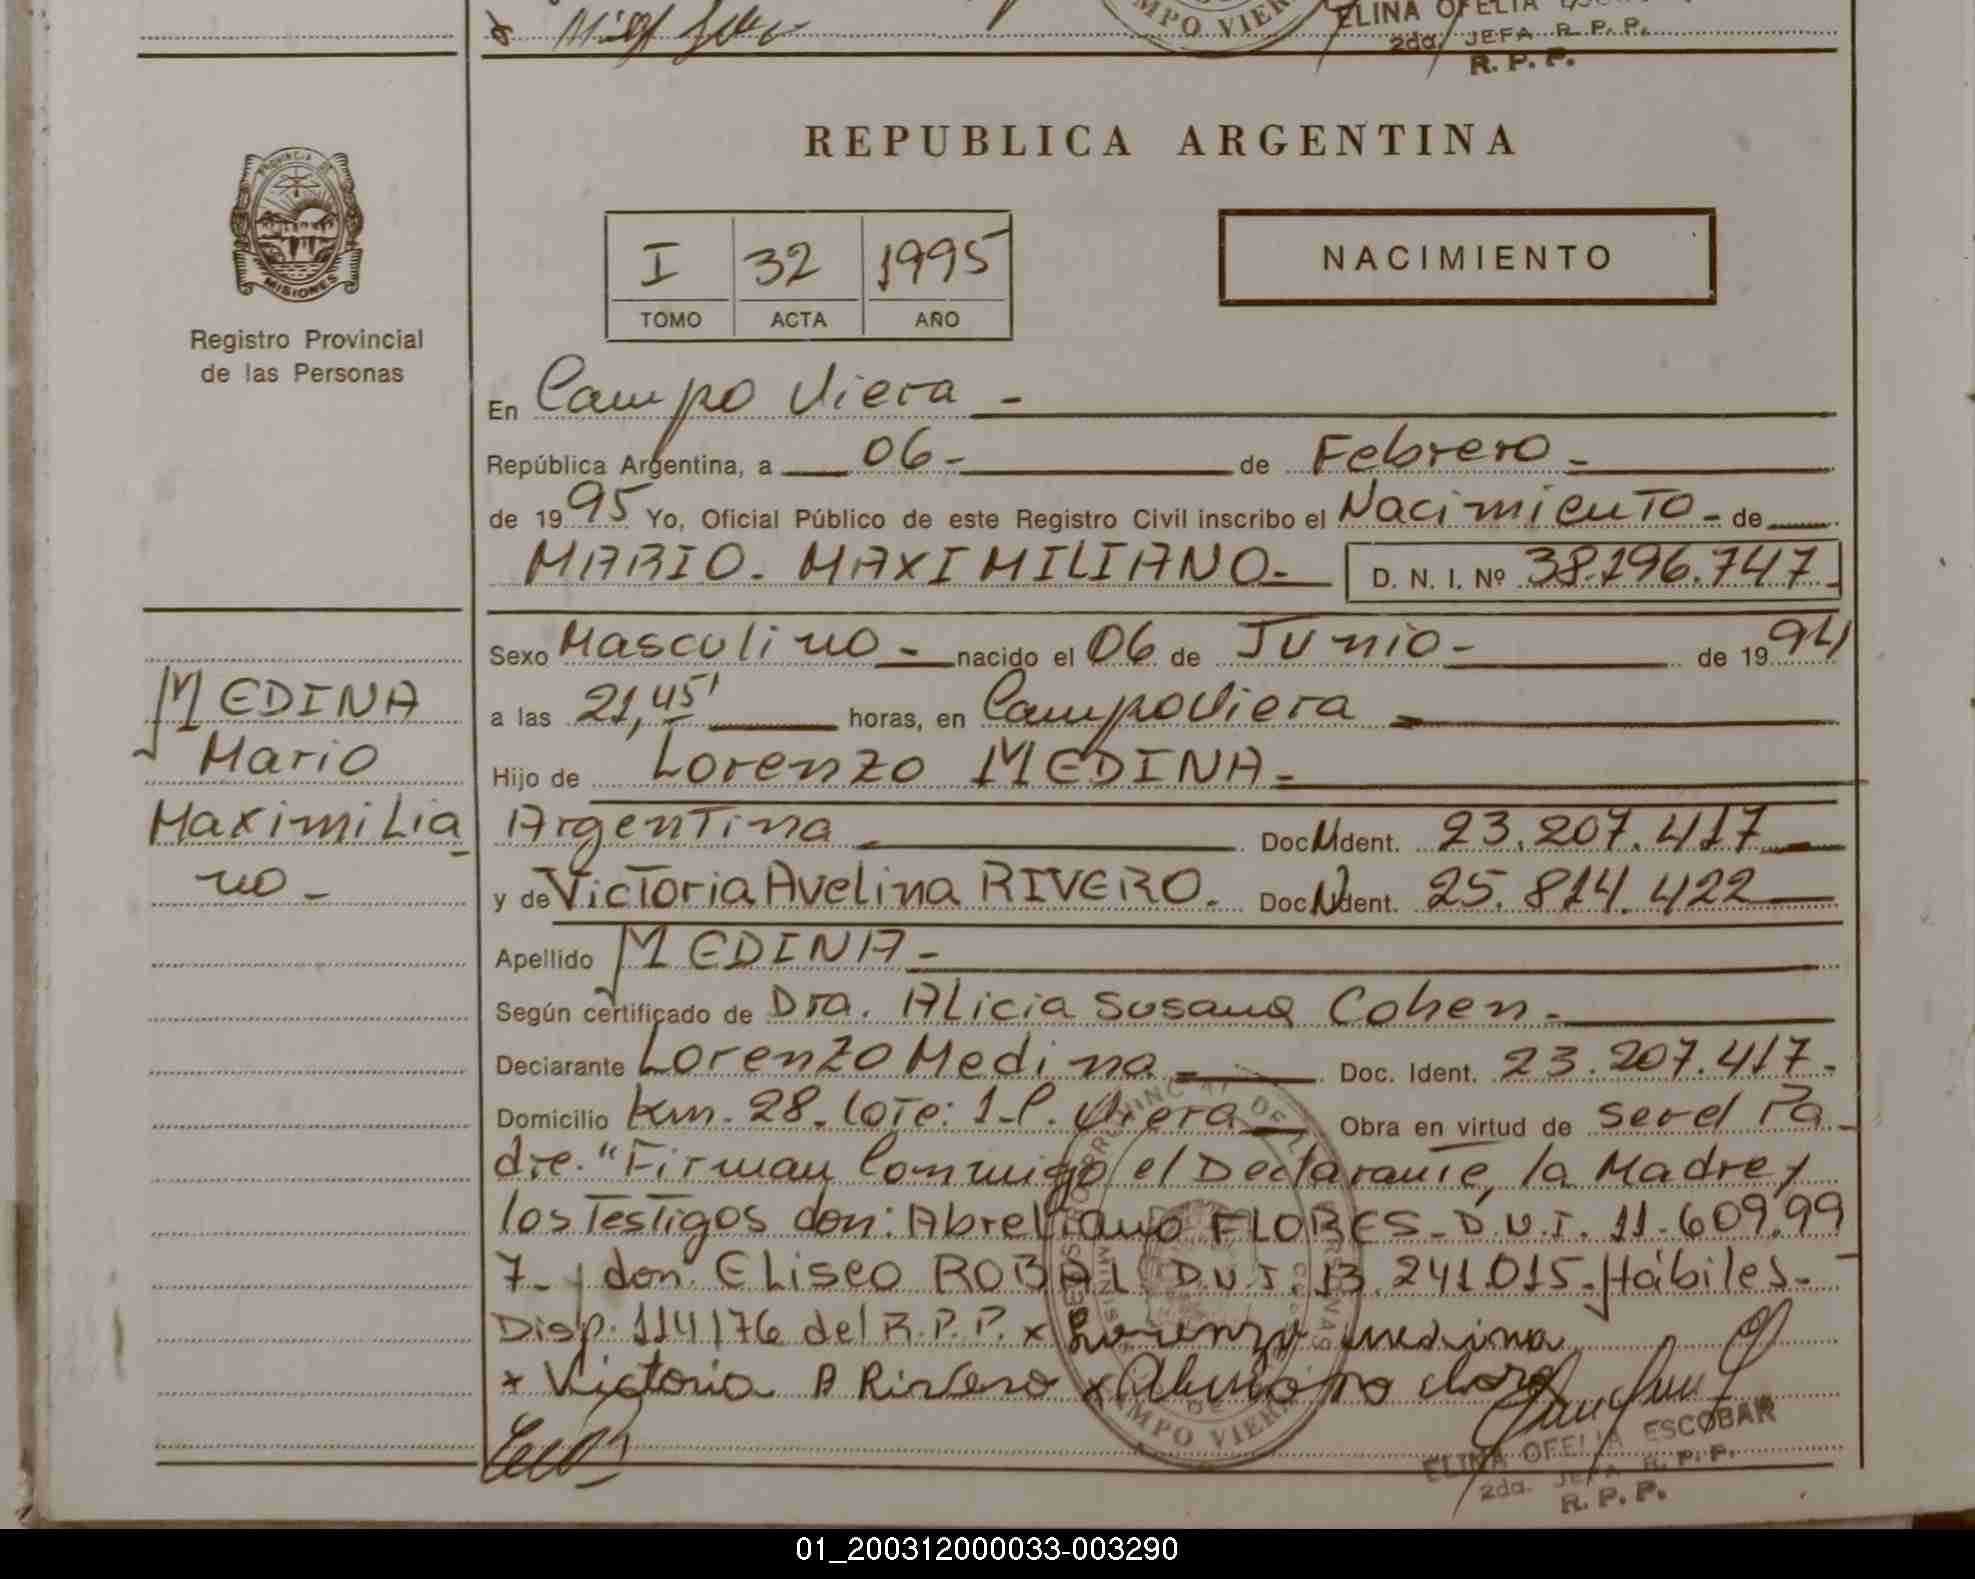 MPO VIER
ELINA OFELIA
2da. JEFA R. P. P.
R. P. P.
REPUBLICA ARGENTINA
PROVINCIA DE
MISIONES
Registro Provincial
de las Personas
I 32 1995
TOMO ACTA AÑO
NACIMIENTO
En Campo Viera -
República Argentina, a 06- de Febrero -
de 1995 Yo, Oficial Público de este Registro Civil inscribo el Nacimiento - de
MARIO. MAXIMILIANO.- D. N. I. Nº 38.196.747
Sexo Masculino - nacido el 06 de Junio - de 1994
a las 21,45' horas, en Campo Viera -
Hijo de Lorenzo MEDINA -
Argentina Doc N Ident. 23.207.417
y de Victoria Avelina RIVERO. Doc N Ident. 25.814.422
Apellido MEDINA -
Según certificado de Dra. Alicia Susana Cohen -
Declarante Lorenzo Medina - Doc. Ident. 23.207.417-
Domicilio Km. 28. lote: 1-C. Viera Obra en virtud de ser el Pa-
dre. "Firman Conmigo el Declarante, la Madre y
los Testigos don: Abreliano FLORES - D.N.I. 11.609.99
7- y don Eliseo ROBAL D.N.I. 13.241.015- Hábiles-
Disp. 114/76 del R.P.P. x Lorenzo medina
x Victoria A Rivero x
MEDINA
Mario
Maximilia-
no -
MPO VIER
ELINA OFELIA ESCOBAR
2da. JEFA R. P. P.
R. P. P.
01_200312000033-003290